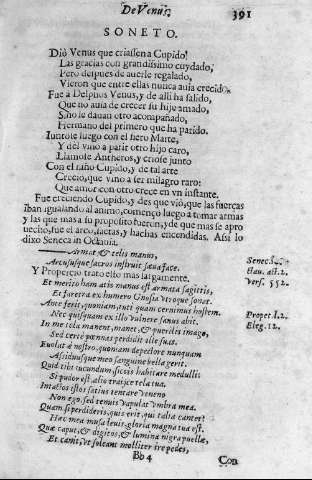 De Venus. 391
SONETO.
Diò Venus que criassen a Cupido
Las gracias con grandissimo cuydado,
Pero despues de auerle regalado,
Vieron que entre ellas nunca auia crecido.
Fue a Delphos Venus, y de alli ha salido,
Que no auia de crecer su hijo amado,
Sino le dauan otro acompañado,
Hermano del primero que ha parido.
Iuntose luego con el fiero Marte,
Y del vino a parir otro hijo caro,
Llamose Antheros, y criose junto
Con el niño Cupido, y de tal arte
Crecio, que vino a ser milagro raro:
Que amor con otro crece en vn instante.
Fue creciendo Cupido, y des que viò, que las fuerças
iban igualando al animo, començo luego a tomar armas
y las que mas a su proposito fueron, y de que mas se apro
uecho, fue el arco, saetas, y hachas encendidas. Assi lo
dixo Seneca in Octauia.
Armat & telis manus,
Arcuque sacros instruit sæua face.
Senec.
Y Propercio trato esto mas largamente.
act. 2.
Et merito hamatis manus est armata sagittis,
Vers. 552.
Et faretra ex humero Gnosia vtroque sonat.
Ante ferit, quoniam, tuti quam cernimus hostem.
Proper. l.2.
Nec quisquam ex illo vulnere sanus abit.
Eleg. 12.
In me tela manent, manet, & puerilis imago,
Sed certe pœnnas perdidit ille suas.
Euolat à nostro, quoniam de pectore nunquam
Assiduusque meo sanguine bella gerit.
Quid tibi iucundum siccis habitare medullis
Si pudor est alio traijce tela tua.
Intactos istos satius tentare veneno
Non ego, sed tenuis vapulat vmbra mea.
Quam si perdideris, quis erit, qui talia cantet?
Hæc mea musa leuis, gloria magna tua est.
Quæ caput, & digitos, & lumina nigra puellæ,
Et canit, vt soleant molliter ire pedes,
Bb 4 Con